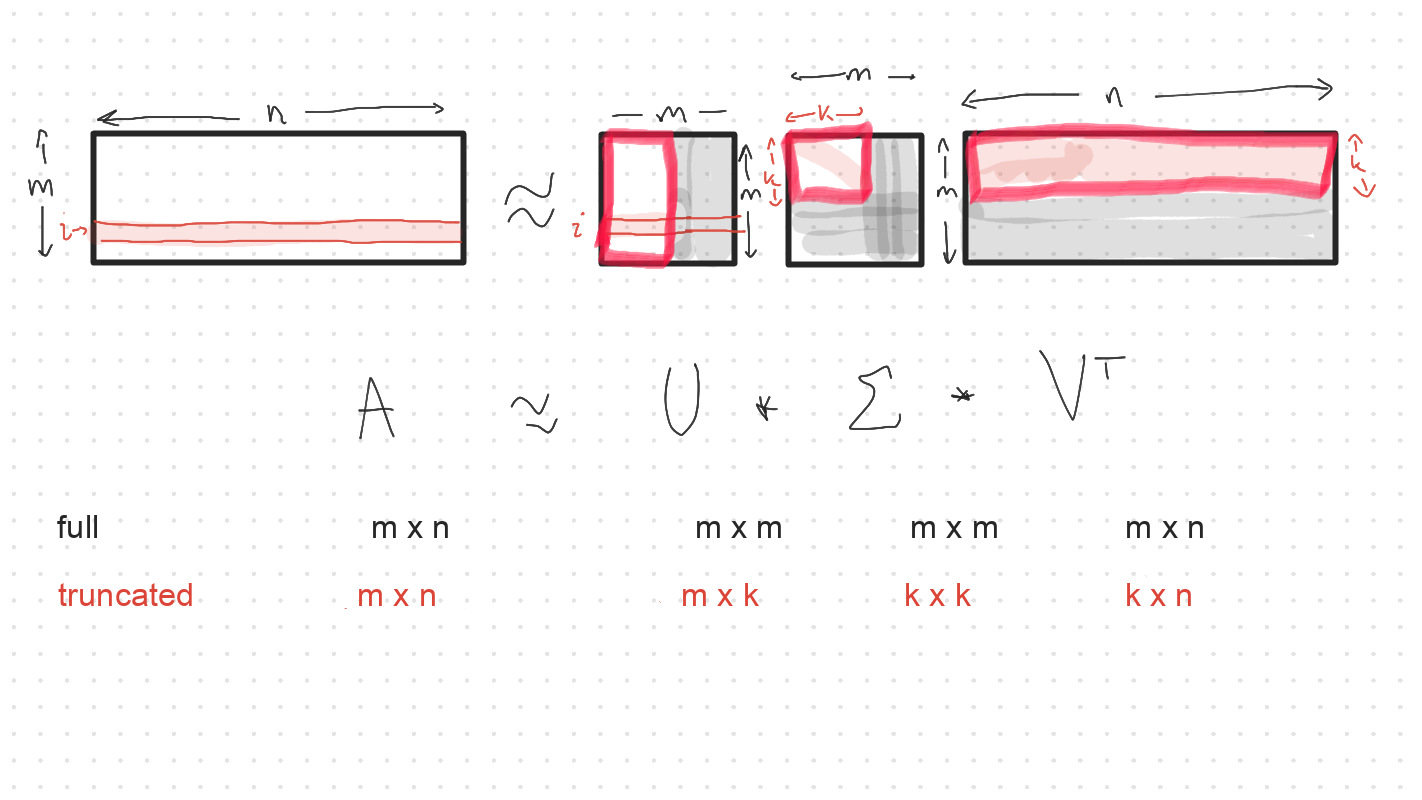 m
n m k n
m m k m k
i→ i
≈
A ≈ U * Σ * Vᵀ
full m x n m x m m x m m x n
truncated m x n m x k k x k k x n